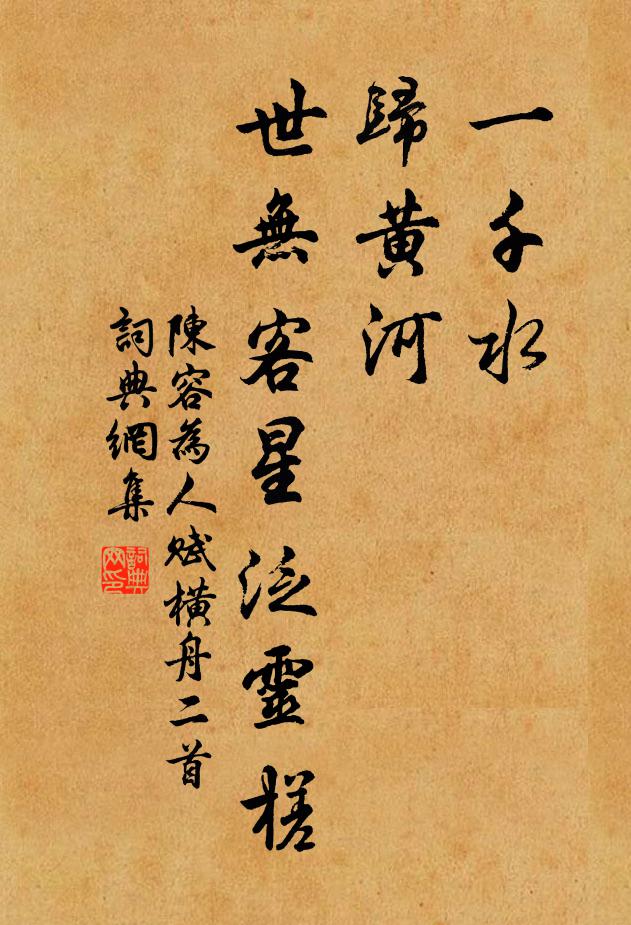 一千水
歸黃河
世無客星泛靈槎
陳容為人賦橫舟二首
詞典網集
詞典
网印